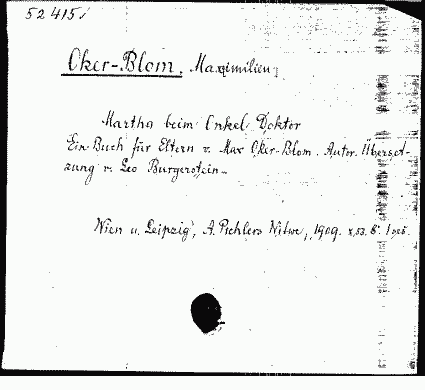 52415
Oker-Blom, Maximilien
Martha beim Onkel Doktor
Ein Buch für Eltern v. Max Oker-Blom. Autor. Überset-
zung v. Leo Burgerstein.
Wien u. Leipzig, A. Pichlers Witwe, 1909. x, 53. 8°.